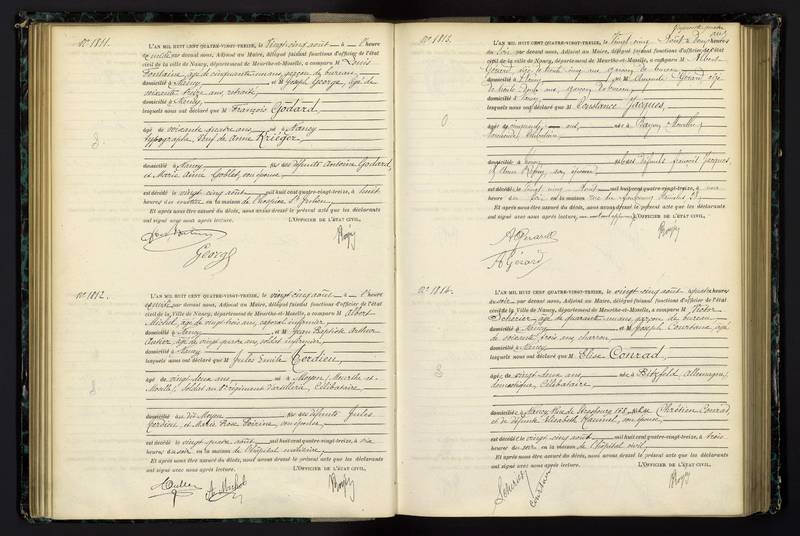 No 1811.
L'AN MIL HUIT CENT QUATRE-VINGT-TREIZE, le vingt cinq août à heure
par devant nous, Adjoint au Maire, délégué faisant fonctions d'officier de l'état
civil de la ville de Nancy, département de Meurthe-et-Moselle, a comparu M Louis
Fontaine, âgé de cinquante un ans, garçon de bureau,
domicilié à Nancy et M Joseph George, âgé de
soixante treize ans, retraité,
domicilié à Nancy,
lesquels nous ont déclaré que M François Godard,
âgé de soixante quatre ans né à Nancy
typographe, veuf de Anne Krieger,
domicilié à Nancy fils de défunts Antoine Godard,
et Marie Anne Goblet, son épouse,
est décédé le vingt cinq août mil huit cent quatre-vingt-treize, à huit
heures du matin en la maison de l'hospice St Julien,
Et après nous être assuré du décès, nous avons dressé le présent acte que les déclarants
ont signé avec nous après lecture. L'OFFICIER DE L'ÉTAT CIVIL,
George
No 1812.
L'AN MIL HUIT CENT QUATRE-VINGT-TREIZE, le vingt cinq août à heure
par devant nous, Adjoint au Maire, délégué faisant fonctions d'officier de l'état
civil de la Ville de Nancy, département de Meurthe-et-Moselle, a comparu M Albert
Michel, âgé de vingt trois ans, caporal infirmier,
domicilié à Nancy et M Jean Baptiste Arthur
âgé de vingt quatre ans, soldat infirmier,
domicilié à Nancy
lesquels nous ont déclaré que M Jules Emile Cordieu,
âgé de vingt deux ans né à Moyen, Meurthe et
Moselle, soldat au 8e régiment d'artillerie, célibataire,
domicilié au dit Moyen fils de défunts Jules
Cordieu, et Marie Rose son épouse,
est décédé le vingt quatre août mil huit cent quatre-vingt-treize, à six
heures du soir en la maison de l'hôpital militaire,
Et après nous être assuré du décès, nous avons dressé le présent acte que les déclarants
ont signé avec nous après lecture. L'OFFICIER DE L'ÉTAT CIVIL,
A. Michel
No 1813.
L'AN MIL HUIT CENT QUATRE-VINGT-TREIZE, le vingt cinq août à deux heures
du soir par devant nous, Adjoint au Maire, délégué faisant fonctions d'officier de l'état
civil de la ville de Nancy, département de Meurthe-et-Moselle, a comparu M Albert
Gérard, âgé de trente cinq ans, garçon de bureau
domicilié à Nancy et M Auguste Gérard, âgé
de trente deux ans, garçon de bureau,
domicilié à Nancy
lesquels nous ont déclaré que M Constance Jacques,
âgé de cinquante ans, né à
domicilié à Nancy fils de défunts François Jacques,
son épouse
est décédé le vingt cinq août mil huit cent quatre-vingt-treize, à une
heure du soir en la maison rue du Faubourg
Et après nous être assuré du décès, nous avons dressé le présent acte que les déclarants
ont signé avec nous après lecture, L'OFFICIER DE L'ÉTAT CIVIL,
A Gérard
A Gérard
No 1814.
L'AN MIL HUIT CENT QUATRE-VINGT-TREIZE, le vingt cinq août à quatre heures
du soir par devant nous, Adjoint au Maire, délégué faisant fonctions d'officier de l'état
civil de la Ville de Nancy, département de Meurthe-et-Moselle, a comparu M Victor
Scherier, âgé de quarante un ans, garçon de bureau
domicilié à Nancy et M Joseph Courtaux, âgé
de soixante trois ans, charron
domicilié à Nancy
lesquels nous ont déclaré que M Elise Conrad,
âgé de vingt deux ans née à Bitzfeld, Allemagne,
domestique, célibataire,
domicilié à Nancy, rue de Strasbourg 175, fille de Chrétien Conrad,
et de défunte Elisabeth son épouse,
est décédé le vingt cinq août mil huit cent quatre-vingt-treize, à trois
heures du soir, en la maison de l'hôpital civil,
Et après nous être assuré du décès, nous avons dressé le présent acte que les déclarants
ont signé avec nous après lecture. L'OFFICIER DE L'ÉTAT CIVIL,